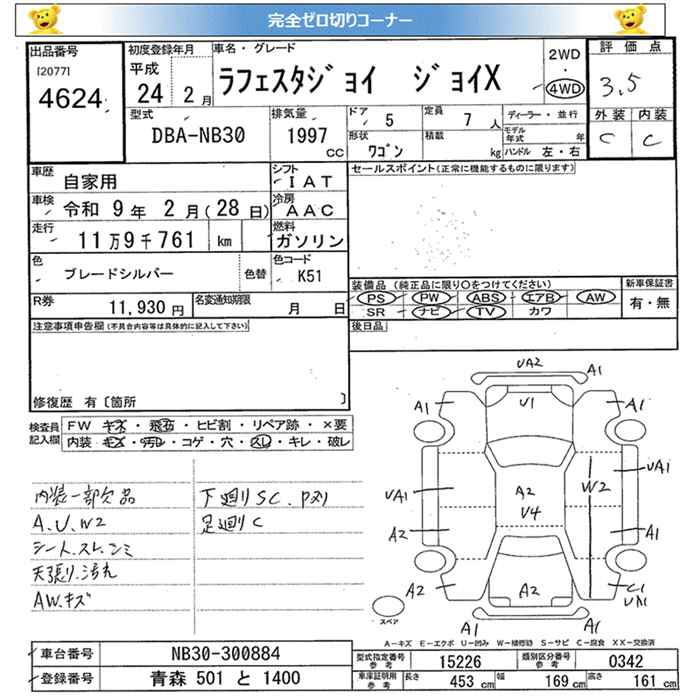 完全ゼロ切りコーナー
出品番号
[2077]
4624
初度登録年月
平成
24 2月
車名・グレード
ラフェスタジョイ ジョイX
2WD
・
4WD
評価点
3.5
外装 内装
C C
型式
DBA-NB30
排気量
1997
CC
ドア
5
定員
7 人
形状
ワゴン
積載
kg
ディーラー・並行
モデル年式 年
ハンドル 左・右
車歴
自家用
シフト
IAT
車検
令和 9年 2月(28日)
冷房
AAC
走行
11万9千761 km
燃料
ガソリン
色
ブレードシルバー
色替
色コード
K51
R券
11,930円
名変通知期限
月 日
セールスポイント(正常に機能するものに限ります)
装備品(純正品に限り○をつけてください)
PS PW ABS エアB AW
SR ナビ TV カワ
新車保証書
有・無
後日品
注意事項申告欄(不具合内容等は具体的に記入して下さい)
修復歴 有〔箇所 〕
検査員記入欄
FW キズ・飛石・ヒビ割・リペア跡・×要
内装・キズ・汚レ・コゲ・穴・スレ・キレ・破レ
内装一部欠品
A.U.W2
シート.スレ.シミ
天張り.汚れ
AWキズ
下廻りSC.Pヌリ
足廻りC
UA2
A1
A1
U1
A1
UA1
A2
U4
W2
UA1
A2
A1
A2
A2
C1
UA1
A1
A1
スペア
A-キズ E-エクボ U-凹み W-補修跡 S-サビ C-腐食 XX-交換済
車台番号
NB30-300884
登録番号
青森 501 と 1400
型式指定番号
参考
15226
類別区分番号
参考
0342
車庫証明用
参考
長さ 453 cm 幅 169 cm 高さ 161 cm